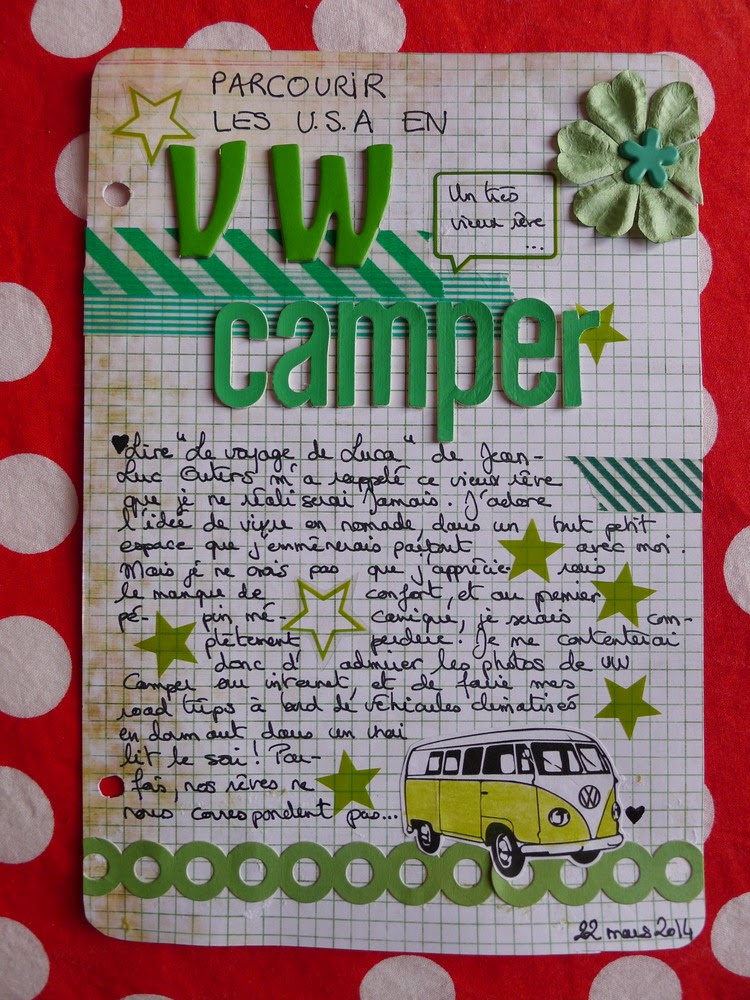 PARCOURIR
LES U.S.A EN
VW
Un très
vieux rêve
...
camper
♥Lire "Le voyage de Luca" de Jean-
Luc Outers m'a rappelé ce vieux rêve
que je ne réaliserai jamais. J'adore
l'idée de vivre en nomade, dans un tout petit
espace que j'emmènerais partout avec moi.
Mais je ne crois pas que j'apprécierais
le manque de confort, et au premier
pé- pin mé- canique, je serais com-
plètement perdue! Je me contenterai
donc d' admirer les photos de VW
Camper sur internet, et de faire mes
road trips à bord de véhicules climatisés
en dormant dans un vrai
lit le soir! Par-
fois, nos rêves ne
nous correspondent pas...
VW
♥
22 mars 2014